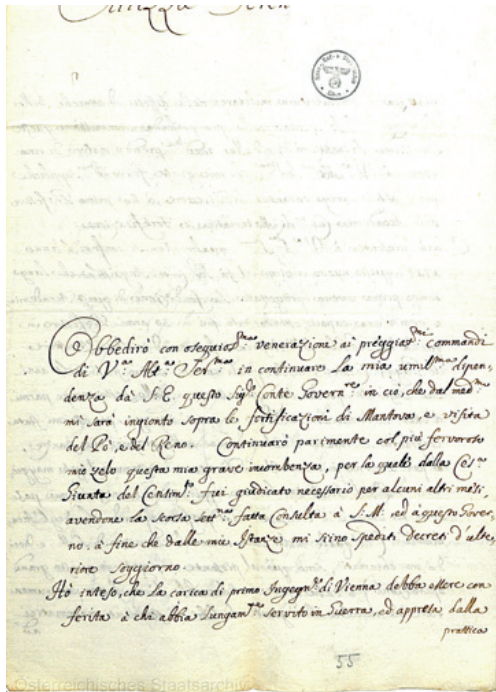 Obbedirò con osequios.ma venerazione ai preggiat.mi commandi
di V.ra Alt.za Ser.ma in continuare la mia umil.ma dipen-
denza da S: E: questo Sig.r Conte Govern.re in ciò, che dal med.mo
mi sarà ingionto sopra le fortificazioni di Mantova, e visita
del Pò, e del Reno. Continuarò parimente col più fervoroso
mio zelo questa mia grave incombenza, per la quale dalla Ces.a
Giunta del Censim.to fui giudicato necessario per alcuni altri mesi,
avendone la scorsa sett.na fatta Consulta à S: M: ed à questo Gover-
no à fine che dalle mie Istanze mi siino spediti decreti d'ulte-
riore soggiorno.
Hò inteso, che la carica di primo Ingegn.re di Vienna debba essere con-
ferita à chi abbia lungam.te servito in Guerra, ed appresa dalla
prattica
55
Österreichisches Staatsarchiv